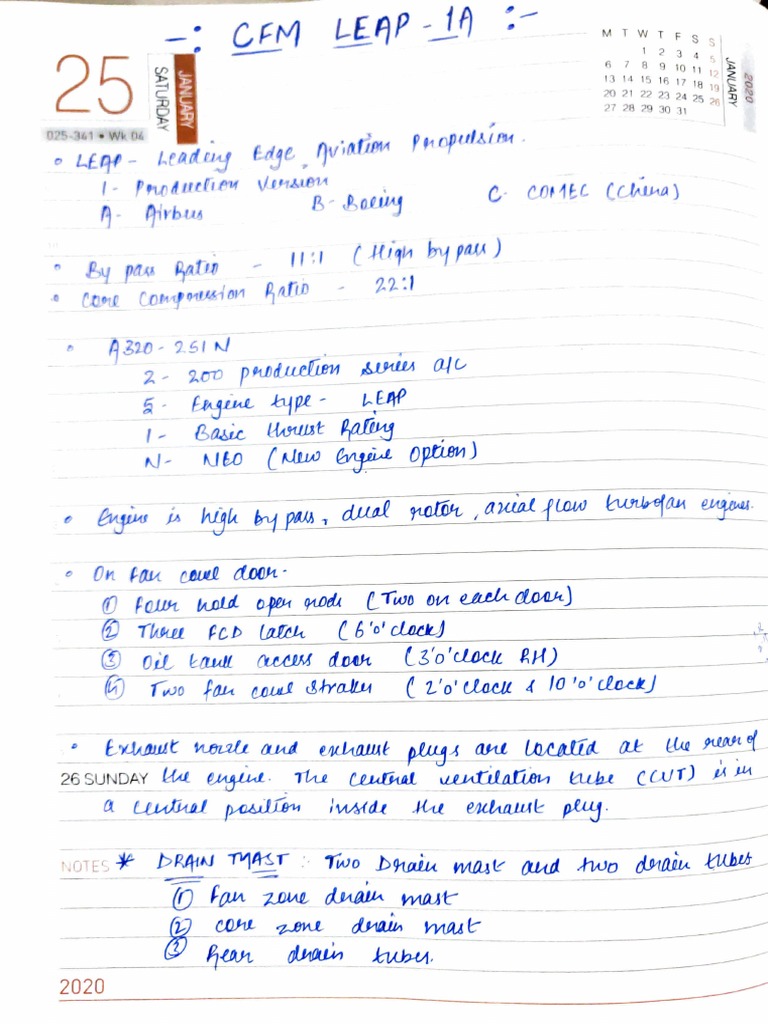 -: CFM LEAP-1A :-
M T W T F S S
1 2 3 4 5
6 7 8 9 10 11 12
13 14 15 16 17 18 19
20 21 22 23 24 25 26
27 28 29 30 31
JANUARY
2020
25
SATURDAY
JANUARY
025-341 • Wk 04
• LEAP - Leading Edge Aviation Propulsion.
1 - Production Version
A - Airbus B - Boeing C - COMEC (China)
• By pass Ratio - 11:1 (High by pass)
• Core Compression Ratio - 22:1
• A320-251N
2 - 200 production series a/c
5 - Engine type - LEAP
1 - Basic thrust Rating
N - NEO (New Engine Option)
• Engine is high by pass, dual rotor, axial flow turbofan engines.
• On fan cowl door-
① Four hold open rods (Two on each door)
② Three FCD latch (6'o'clock)
③ Oil tank access door (3'o'clock RH)
④ Two fan cowl strakes (2'o'clock & 10'o'clock)
• Exhaust nozzle and exhaust plugs are located at the rear of
26 SUNDAY the engine. The central ventilation tube (CVT) is in
a central position inside the exhaust plug.
NOTES * DRAIN MAST : Two Drain mast and two drain tubes
① Fan zone drain mast
② core zone drain mast
③ Rear drain tubes.
2020